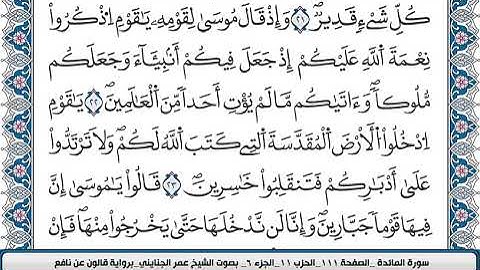 كُلِّ شَےْءٖ قَدِيرٞ ۝٢١ وَإِذْ قَالَ مُوسَىٰ لِقَوْمِهِۦ يَٰقَوْمِ اِ۟ذْكُرُوا۟
نِعْمَةَ اَ۬للَّهِ عَلَيْكُمُۥٓ إِذْ جَعَلَ فِيكُمُۥٓ أَنۢبِئَآءَ وَجَعَلَكُم
مُّلُوكاٗ وَءَاتَىٰكُم مَّا لَمْ يُؤْتِ أَحَداٗ مِّنَ اَ۬لْعَٰلَمِينَ ۝٢٢ يَٰقَوْمِ
اِ۟دْخُلُوا۟ اُ۬لْأَرْضَ اَ۬لْمُقَدَّسَةَ اَ۬لتِے كَتَبَ اَ۬للَّهُ لَكُمْ وَلَا تَرْتَدُّوا۟
عَلَىٰٓ أَدْبَٰرِكُمْ فَتَنقَلِبُوا۟ خَٰسِرِينَ ۝٢٣ قَالُوا۟ يَٰمُوسَىٰٓ إِنَّ
فِيهَا قَوْماٗ جَبَّارِينَ وَإِنَّا لَن نَّدْخُلَهَا حَتَّىٰ يَخْرُجُوا۟ مِنْهَا فَإِنْ
سورة المائدة _الصفحة ١١١_الحزب ١١_الجزء ٦_ بصوت الشيخ عمر الجنايني_برواية قالون عن نافع